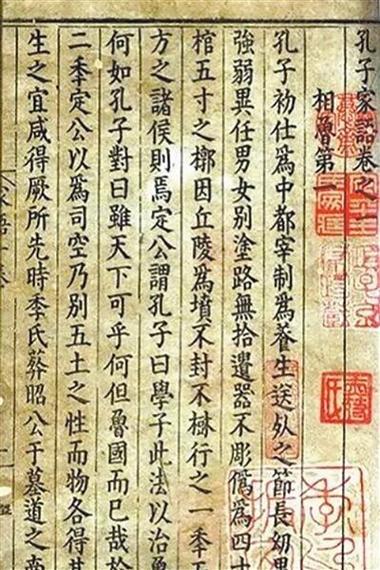 孔子家語卷之一
相魯第一
孔子初仕爲中都宰制爲養生送死之節長幼異
強弱異任男女別塗路無拾遺器不彫僞爲四
棺五寸之槨因丘陵爲墳不封不樹行之一秊
方之諸侯則焉定公謂孔子曰學子此法以治魯
何如孔子對曰雖天下可乎何但魯國而已哉於
二秊定公以爲司空乃別五土之性而物各得其
生之宜咸得厥所先時季氏葬昭公于墓道之南